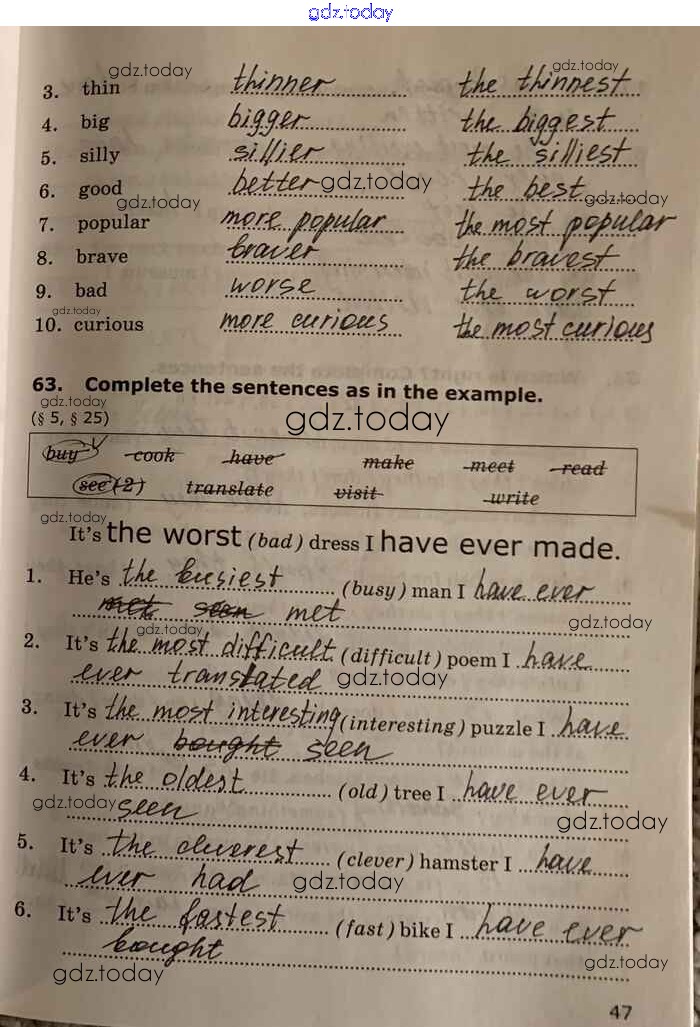 gdz.today
gdz.today gdz.today
3. thin thinner the thinnest
4. big bigger the biggest
5. silly sillier the silliest
6. good better gdz.today the best gdz.today
gdz.today
7. popular more popular the most popular
8. brave braver the bravest
9. bad worse the worst
gdz.today
10. curious more curious the most curious
63. Complete the sentences as in the example.
gdz.today
(§ 5, § 25) gdz.today
buy cook have make meet read
see (2) translate visit write
gdz.today
It's the worst (bad) dress I have ever made.
1. He's the busiest (busy) man I have ever
met seen met
gdz.today gdz.today
2. It's the most difficult (difficult) poem I have
ever translated gdz.today
3. It's the most interesting (interesting) puzzle I have
ever bought seen
4. It's the oldest (old) tree I have ever
gdz.today seen gdz.today
5. It's the cleverest (clever) hamster I have
ever had gdz.today
6. It's the fastest (fast) bike I have ever
bought
gdz.today gdz.today
47